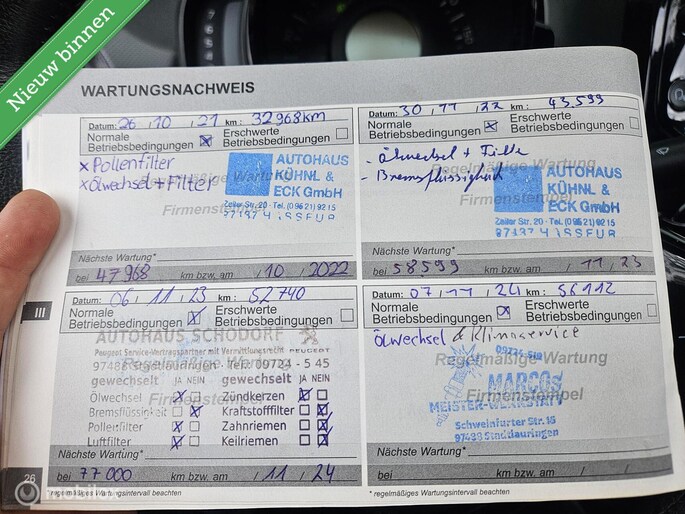 Nieuw binnen
WARTUNGSNACHWEIS
Datum: 26 / 10 / 21 km: 32968km
Normale Betriebsbedingungen
Erschwerte Betriebsbedingungen
x Pollenfilter
x Ölwechsel + Filter
Regelmäßige Wartung
Firmenstempel
AUTOHAUS
KÜHNL &
ECK GmbH
Zeiler Str. 20 · Tel. (0 95 21) 92 15
Nächste Wartung*
bei 47968 km bzw. am / 10 / 2022
Datum: 30 / 11 / 22 km: 43.599
Normale Betriebsbedingungen
Erschwerte Betriebsbedingungen
- Ölwechsel + Filter
- Bremsflüssigkeit
Regelmäßige Wartung
Firmenstempel
AUTOHAUS
KÜHNL &
ECK GmbH
Zeiler Str. 20 · Tel. (0 95 21) 92 15
Nächste Wartung*
bei 58.599 km bzw. am / 11 / 23
III
Datum: 06 / 11 / 23 km: 52740
Normale Betriebsbedingungen
Erschwerte Betriebsbedingungen
AUTOHAUS SCHODORF
Peugeot Service-Vertragspartner mit Vermittlungsrecht PEUGEOT
97488 Stadtlauringen Tel.: 09724 - 5 45
gewechselt JA NEIN gewechselt JA NEIN
Ölwechsel Zündkerzen
Bremsflüssigkeit Kraftstofffilter
Pollenfilter Zahnriemen
Luftfilter Keilriemen
Nächste Wartung*
bei 77000 km bzw. am / 11 / 24
* regelmäßiges Wartungsintervall beachten
Datum: 07 / 11 / 24 km: 56112
Normale Betriebsbedingungen
Erschwerte Betriebsbedingungen
Ölwechsel & Klimaservice
Regelmäßige Wartung
Firmenstempel
MARCOS
MEISTER-WERKSTATT
Schweinfurter Str. 15
97488 Stadtlauringen
Nächste Wartung*
bei km bzw. am / /
* regelmäßiges Wartungsintervall beachten
26